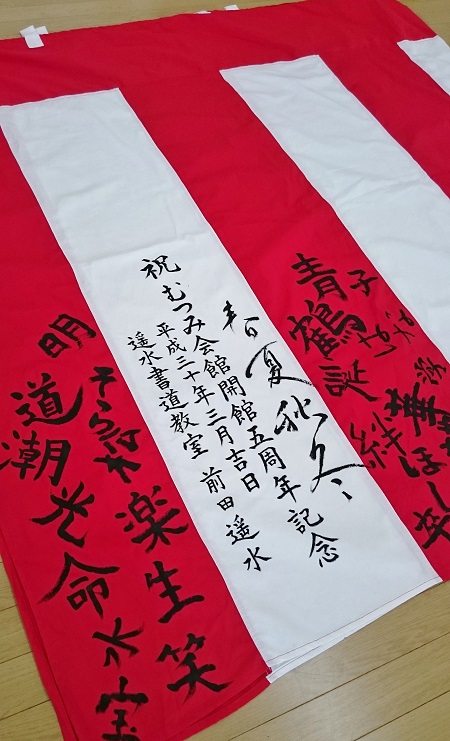 青鶴誕絆
春夏秋冬
祝 むつみ会館開館五周年記念
平成三十年三月吉日
遥水書道教室 前田遥水
そら 楽生笑
明道光命水宝
潮